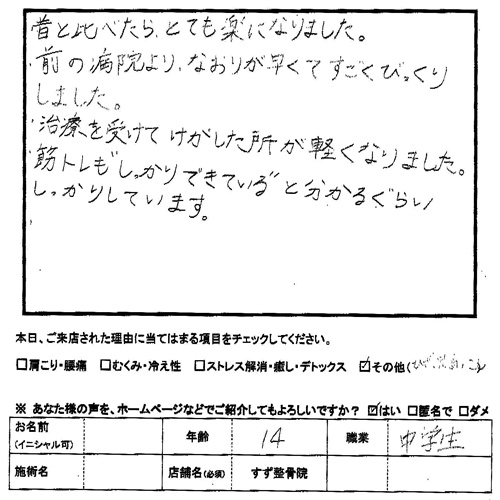 昔と比べたら、とても楽になりました。
・前の病院より、なおりが早くてすごくびっくり
しました。
・治療を受けてけがした所が軽くなりました。
・筋トレも"しっかりできている"と分かるぐらい
しっかりしています。
本日、ご来店された理由に当てはまる項目をチェックしてください。
□肩こり・腰痛 □むくみ・冷え性 □ストレス解消・癒し・デトックス ☑その他(ひざ
※ あなた様の声を、ホームページなどでご紹介してもよろしいですか? ☑はい □匿名で □ダメ
お名前 (イニシャル可) 年齢 14 職業 中学生
施術名 店舗名(必須) すず整骨院